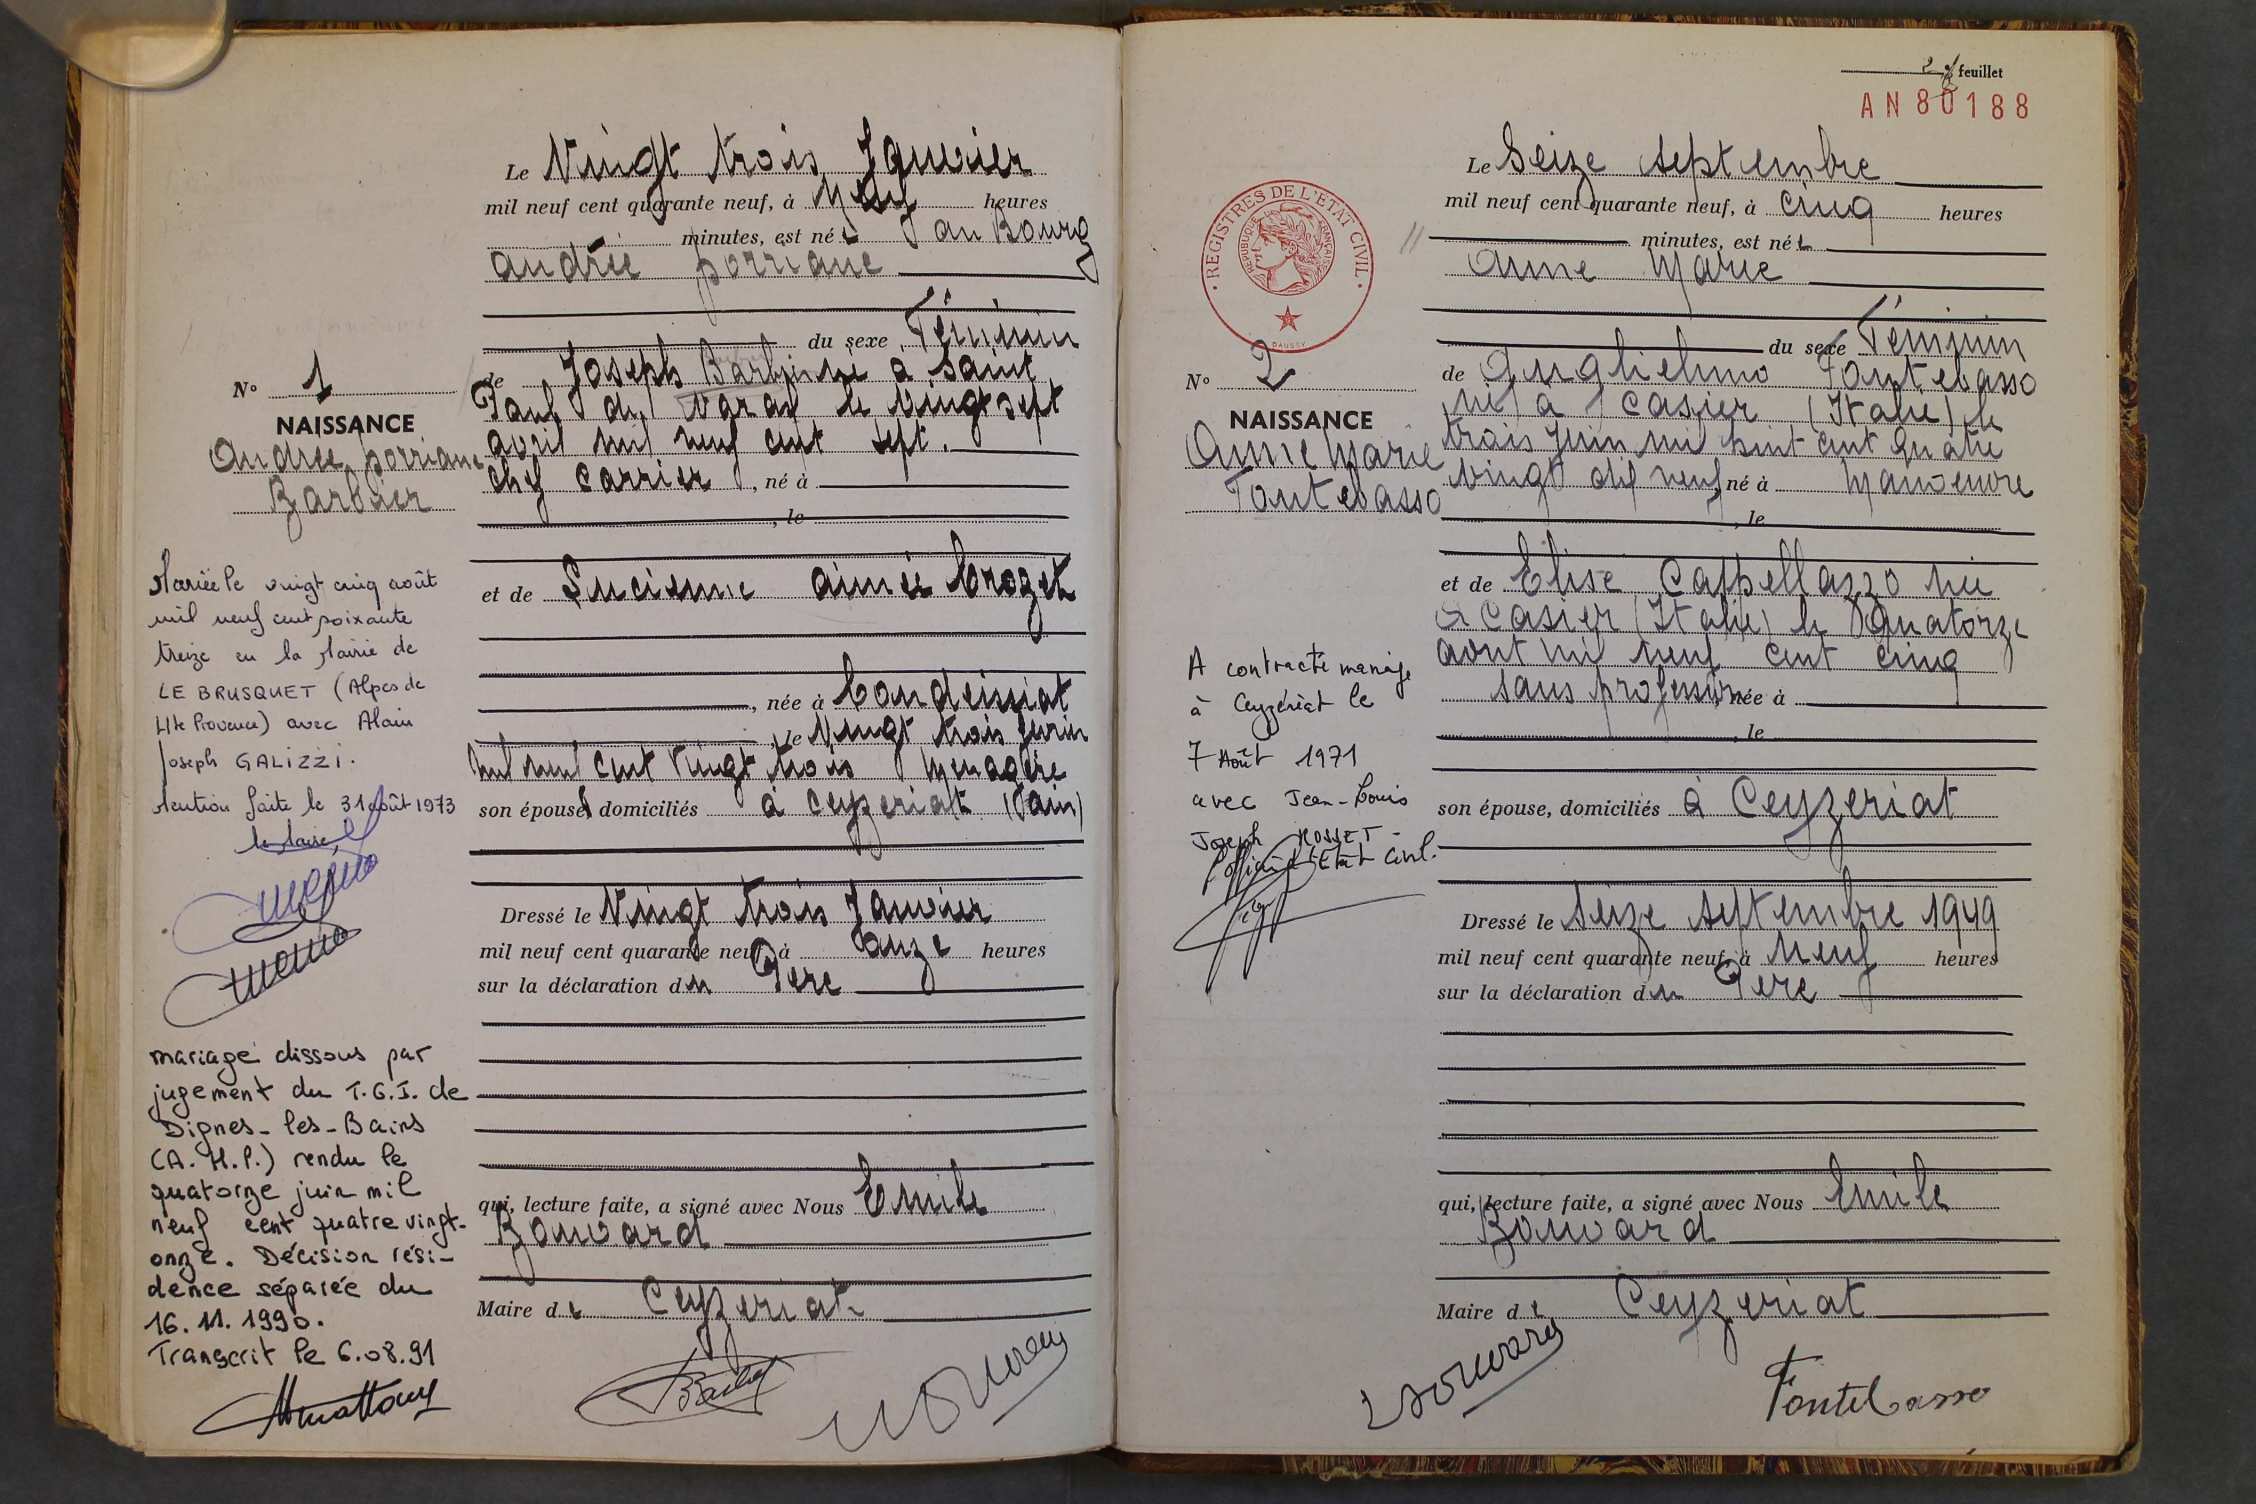 Le Vingt trois Janvier
mil neuf cent quarante neuf, à Neuf heures
minutes, est né e Jau Bourg
andrée porriane
du sexe Féminin
de Joseph Barbier né à Saint
Paul de Varax le Vingt sept
avril mil neuf cent sept.
chef carrier, né à
, le
et de Lucienne aimée Crozet
, née à Condeissiat
, le Vingt trois fevrier
mil neuf cent vingt trois Menagère
son épouse, domiciliés à Ceyzeriat (l'ain)
Dressé le Vingt trois Janvier
mil neuf cent quarante neuf, à onze heures
sur la déclaration du Pere
qui, lecture faite, a signé avec Nous Emile
Bouvard
Maire de Ceyzeriat
N° 1
NAISSANCE
Andrée porriane
Barbier
Mariée le vingt cinq août
mil neuf cent soixante
treize en la Mairie de
LE BRUSQUET (Alpes de
Hte Provence) avec Alain
Joseph GALIZZI.
Mention faite le 31 août 1973
le Maire,
mariage dissous par
jugement du T.G.I. de
Dignes-les-Bains
(A.H.P.) rendu le
quatorze juin mil
neuf cent quatre vingt-
onze. Décision rési-
dence séparée du
16.11.1990.
Transcrit le 6.08.91
feuillet
AN 80188
REGISTRES DE L'ÉTAT CIVIL
RÉPUBLIQUE FRANÇAISE
DAUSSY
Le Seize septembre
mil neuf cent quarante neuf, à cinq heures
minutes, est né e
Anne Marie
du sexe Féminin
de Guglielmo Fontebasso
né à Casier (Italie) le
trois Juin mil huit cent quatre
vingt dix neuf, né à Manoeuvre
, le
et de Elise Cappellazzo née
à Casier (Italie) le Quatorze
aout mil neuf cent cinq
sans profession, née à
, le
son épouse, domiciliés à Ceyzeriat
Dressé le Seize septembre 1949
mil neuf cent quarante neuf, à Neuf heures
sur la déclaration du Pere
qui, lecture faite, a signé avec Nous Emile
Bouvard
Maire de Ceyzeriat
Bouvard
Fontebasso
N° 2
NAISSANCE
Anne Marie
Fontebasso
A contracté mariage
à Ceyzériat le
7 Août 1971
avec Jean-Louis
Joseph ROSSET -
l'officier d'Etat Civil.